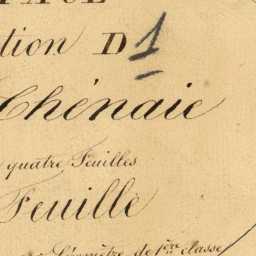 tion D 1
Chênaie
quatre Feuilles
Feuille
Géomètre de 1ère classe